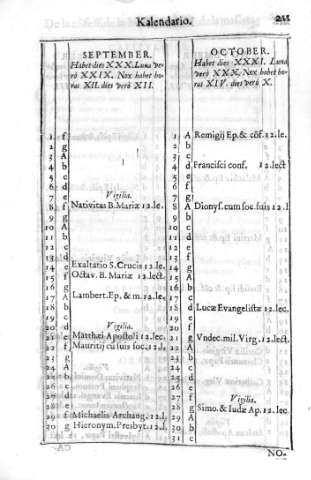 Kalendario. 211
SEPTEMBER.
Habet dies XXX. Luna ve-
rò XXIX. Nox habet ho-
ras XII. dies verò XII.
1 f
2 g
3 A
4 b
5 c
6 d
7 e Vigilia.
8 f Nativitas B. Mariæ 12. le.
9 g
10 A
11 b
12 c
13 d
14 e Exaltatio S. Crucis 12. le.
15 f Octav. B. Mariæ 12. lect.
16 g
17 A Lambert. Ep. & m. 12. le.
18 b
19 c
20 d Vigilia.
21 e Matthæi Apostoli 12. lec.
22 f Mauritij cū suis soc. 12. l.
23 g
24 A
25 b
26 c
27 d
28 e
29 f Michaelis Archang. 12. l.
30 g Hieronym. Presbyt. 12. l.
OCTOBER.
Habet dies XXXI. Luna
verò XXX. Nox habet ho-
ras XIV. dies verò X.
1 A Remigij Ep. & cōf. 12. le.
2 b
3 c
4 d Francisci conf. 12. lect
5 e
6 f
7 g
8 A Dionys. cum soc. suis 12. l
9 b
10 c
11 d
12 e
13 f
14 g
15 A
16 b
17 c
18 d Lucæ Evangelistæ 12. lec.
19 e
20 f
21 g Vndec. mil. Virg. 12. lect.
22 A
23 b
24 c
25 d
26 e
27 f Vigilia.
28 g Simo. & Iudæ Ap. 12. lec.
29 A
30 b
31 c
NO-